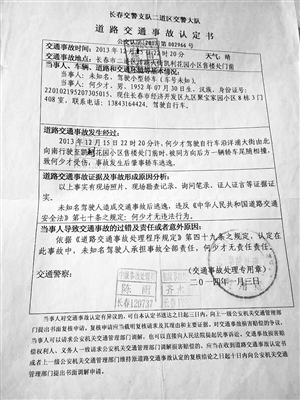 长春交警支队二道区交警大队
道路交通事故认定书
第 002966 号
交通事故时间：2013年12月15日22时20分 天气：晴
交通事故地点：长春市二道区洋浦大街凯利花园小区售楼处门前
当事人、车辆、道路和交通环境等基本情况：
当事人：未知名，驾驶小型轿车（车号不详）。
当事人：何少才，男，1952年07月30日生，汉族，身份证号：
，住长春市经济开发区九区聚宝家园小区8栋3门
408室，联系电话：13843164424，驾驶自行车。
道路交通事故发生经过：
2013年12月15日22时20分许，何少才驾驶自行车沿洋浦大街由北
向南行驶至凯利花园小区售楼处门前时，被同方向后方一辆轿车尾随相撞，
致何少才受伤，事故发生后肇事轿车逃逸。
道路交通事故证据及事故形成原因分析：
以上事实有现场照片、现场勘查记录、询问笔录、证人证言等证据证
实。
未知名驾驶人造成交通事故后逃逸，违反《中华人民共和国道路交通
安全法》第七十条之规定；何少才无违法行为。
当事人导致交通事故的过错及责任或者意外原因：
依据《道路交通事故处理程序规定》第四十九条之规定，认定在
此事故中，未知名驾驶人承担事故全部责任，何少才无责任责任。
交通警察：
陈雨
长春120737
（交通事故处理专用章）
二〇一四年一月三日
当事人对交通事故认定有异议的，可自本认定书送达之日起三日内，向上一级公安机关交通管理部
门提出书面复核申请。复核申请应当载明复核请求及其理由和主要证据。对交通事故损害赔偿的争议，
当事人可以请求公安机关交通管理部门调解，也可以直接向人民法院提起民事诉讼。交通事故损害赔
偿权利人、义务人一致请求公安机关交通管理部门调解损害赔偿的，应当在收到道路交通事故认定书
或者上一级公安机关交通管理部门维持原道路交通事故认定的复核结论之日起十日内向公安机关交通
管理部门提出书面调解申请。